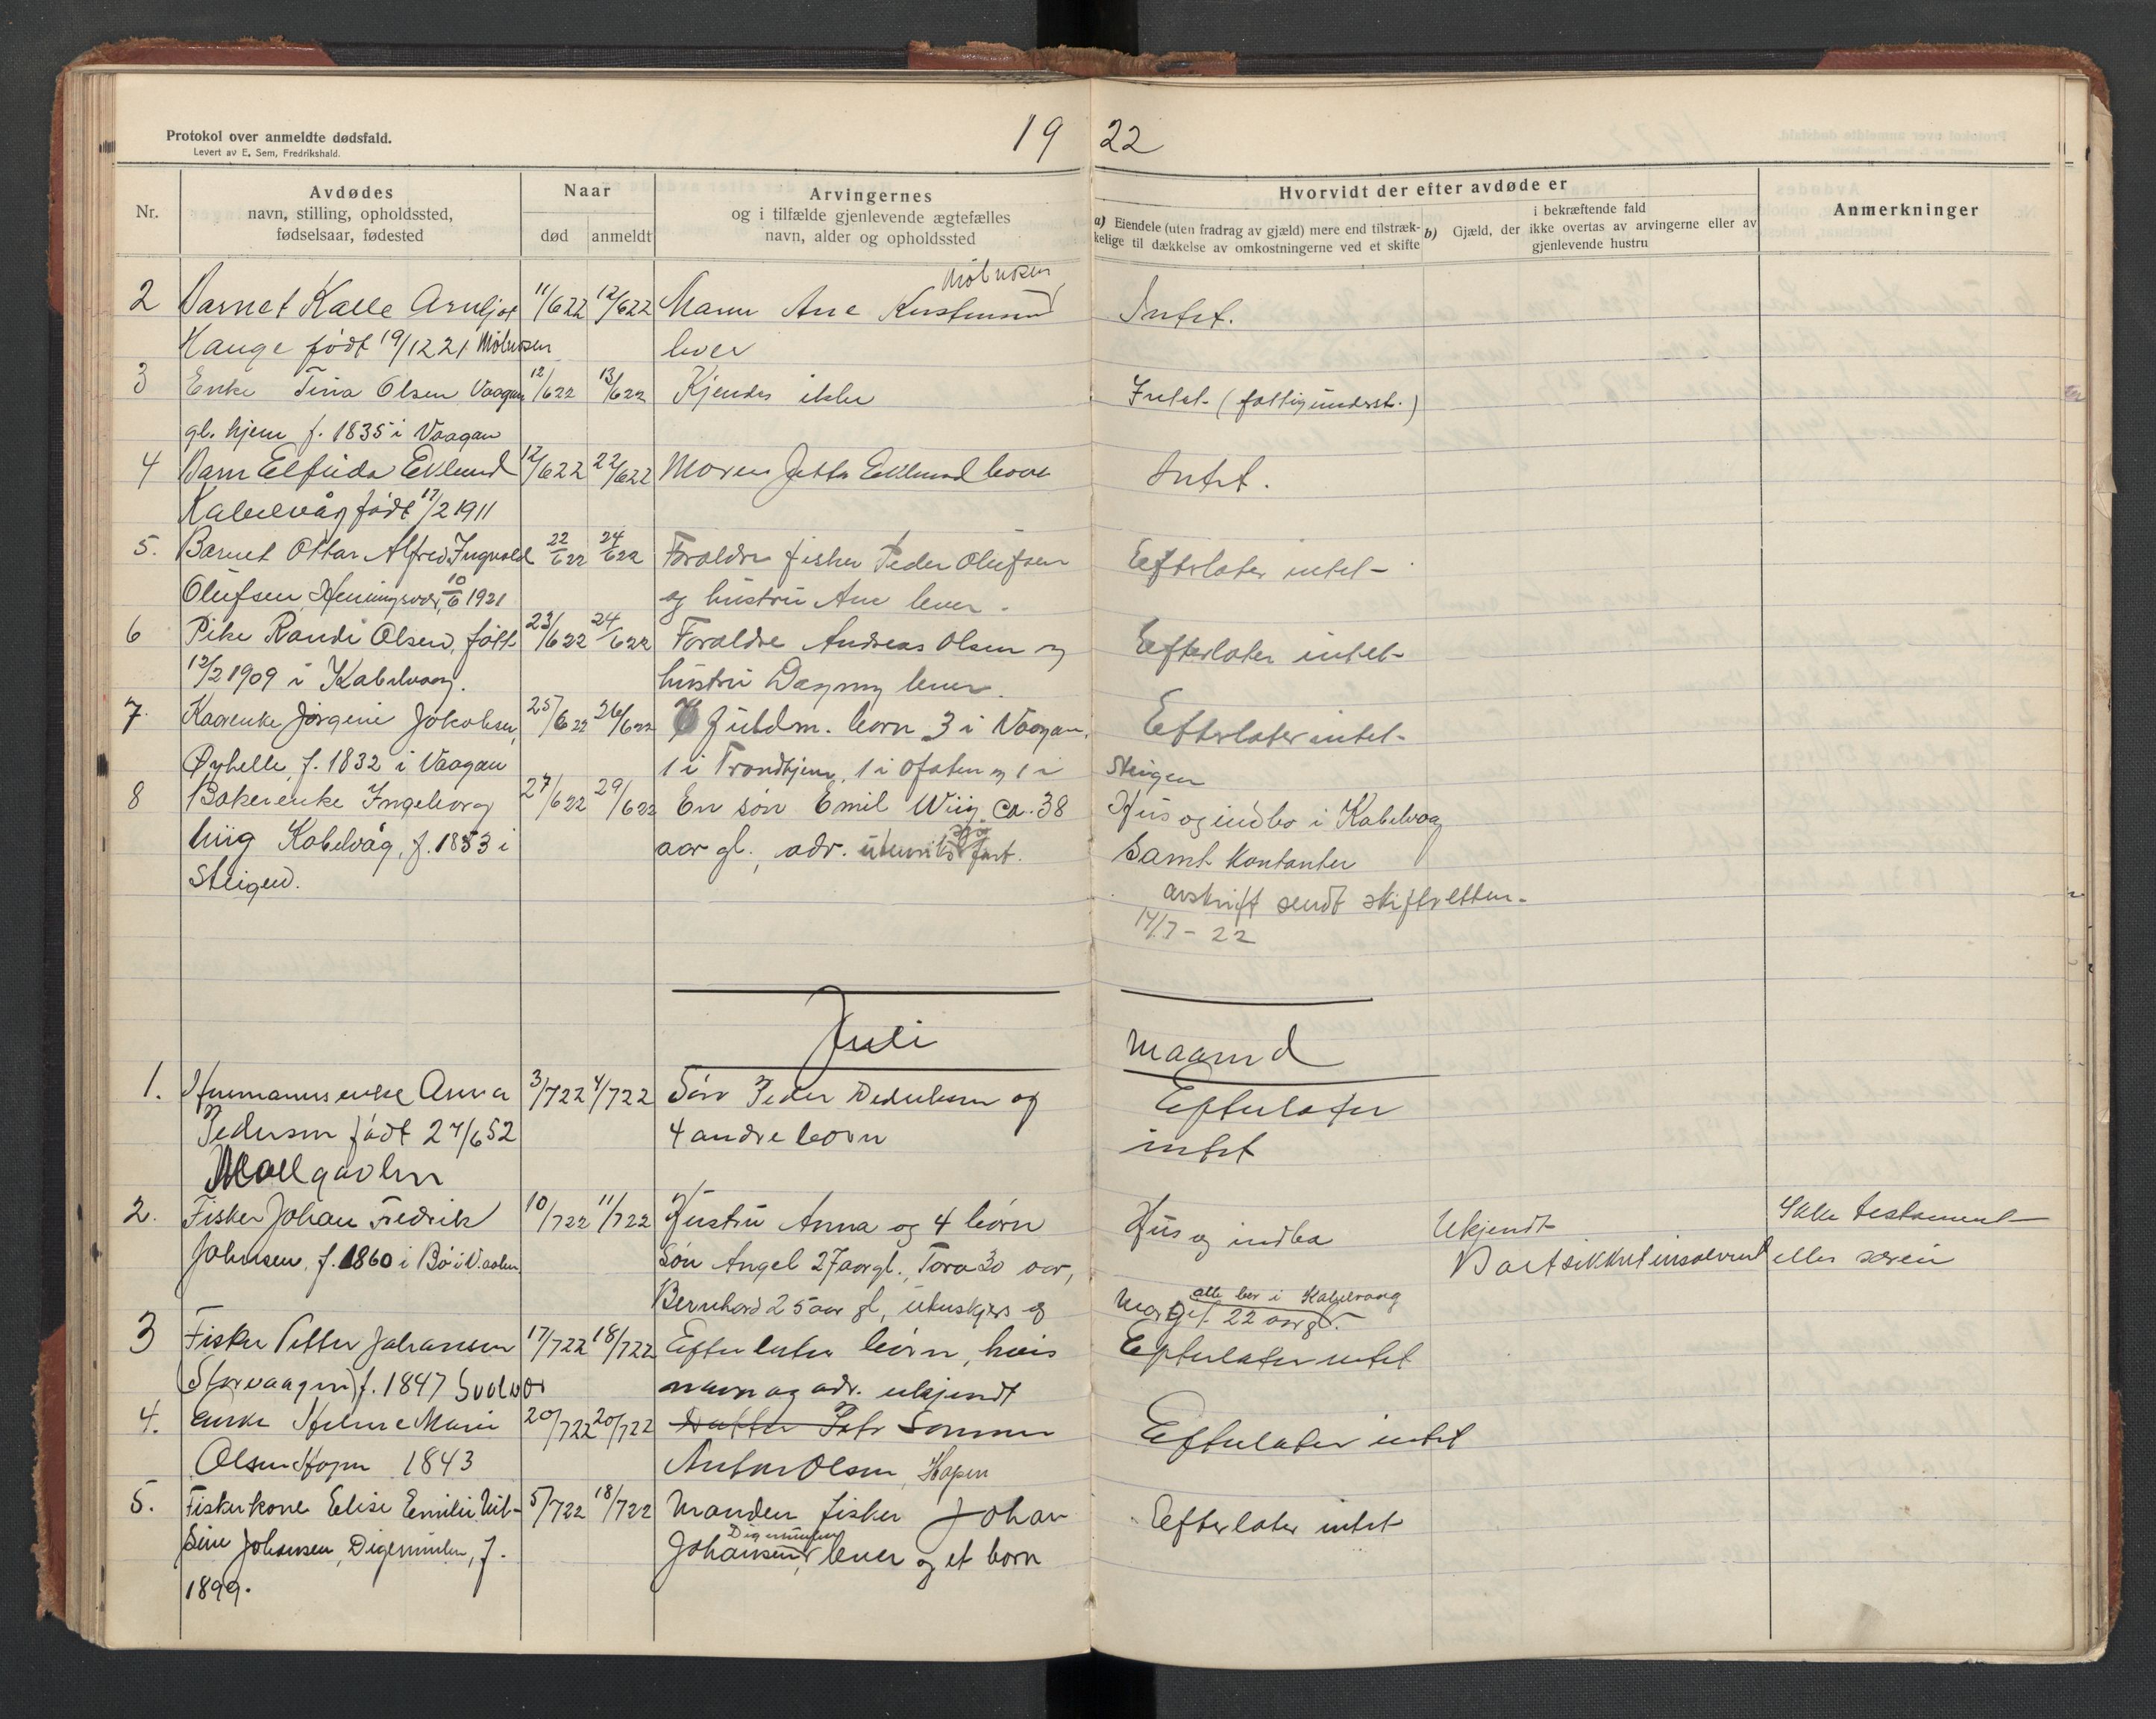 Protokol over anmeldte dødsfald.
Levert av E. Sem, Fredrikshald.
19 22
Nr.
Avdødes
navn, stilling, opholdssted,
fødselsaar, fødested
Naar
død anmeldt
Arvingernes
og i tilfælde gjenlevende ægtefælles
navn, alder og opholdssted
Hvorvidt der efter avdøde er
a) Eiendele (uten fradrag av gjæld) mere end tilstræk-
kelige til dækkelse av omkostningerne ved et skifte
i bekræftende fald
b) Gjæld, der ikke overtas av arvingerne eller av
gjenlevende hustru
Anmerkninger
2 Barnet Kalle Arnljot 11/6 22 12/6 22 Intet.
Hauge født 19/12 21 Mølnosen lever
3 Enke Tina Olsen Vaagan 12/6 22 13/6 22 Kjendes ikke Intet (fattigunderst.)
gl. hjem f. 1835 i Vaagan
4 Barn Elfrida Eklund 12/6 22 22/6 22 Moren Jetta Eklund lever Intet.
Kabelvåg født 17/2 1911
5. Barnet Ottar Alfred Ingvald 22/6 22 24/6 22 Forældre fisker Peder Olufsen Efterlater intet
Olufsen, Henningsvær, 10/6 1921 og hustru Ane lever.
6 Pike Randi Olsen, født 23/6 22 24/6 22 Forældre Andreas Olsen og Efterlater intet
12/2 1909 i Kabelvaag. hustru Dagny lever.
7. Kaarenke Jørgine Jakobsen, 25/6 22 26/6 22 born 3 i Vaagan, Efterlater intet
Ørhelle, f. 1832 i Vaagan 1 i Trondhjem, 1 i Ofoten og 1 i Steigen
8 Bakerenke Ingeborg 27/6 22 29/6 22 En søn Emil Wiig ca. 38 Hus og indbo i Kabelvaag
Wiig Kabelvåg, f. 1853 i aar gl., adr. utenriks sjøfart. Samt kontanter
Steigen. avskrift sendt skifteretten
14/7 - 22
Juli maaned
1. Anna 3/7 22 4/7 22 Søn Peder Pedersen og Efterlater
Pedersen født 27/6 52 4 andre born intet
2. Fisker Johan Fredrik 10/7 22 11/7 22 Hustru Anna og 4 børn Hus og indbo Ukjendt Ikke testament
Johnsen, f. 1860 i Bø i V.aalen Søn Angel 27 aar gl., Tora 30 aar, eller særeie
Bernhard 25 aar gl, utenskjærs og Marget 22 aar gl.
alle bor i Kabelvaag
3 Fisker Petter Johansen 17/7 22 18/7 22 Efterlater børn, hvis Efterlater intet
Storvaagen f. 1847 Svolvær navn og adr. ukjendt
4. Enke Helene Marie 20/7 22 20/7 22 Datter Sønnen Efterlater intet
Olsen Hopen 1843 Anton Olsen, Hopen
5. Fiskerkone Elise Emilie Nil- 5/7 22 18/7 22 Manden fisker Johan Efterlater intet
sine Johansen, Digermulen, f. Johansen, Digermulen, lever og et born
1899.